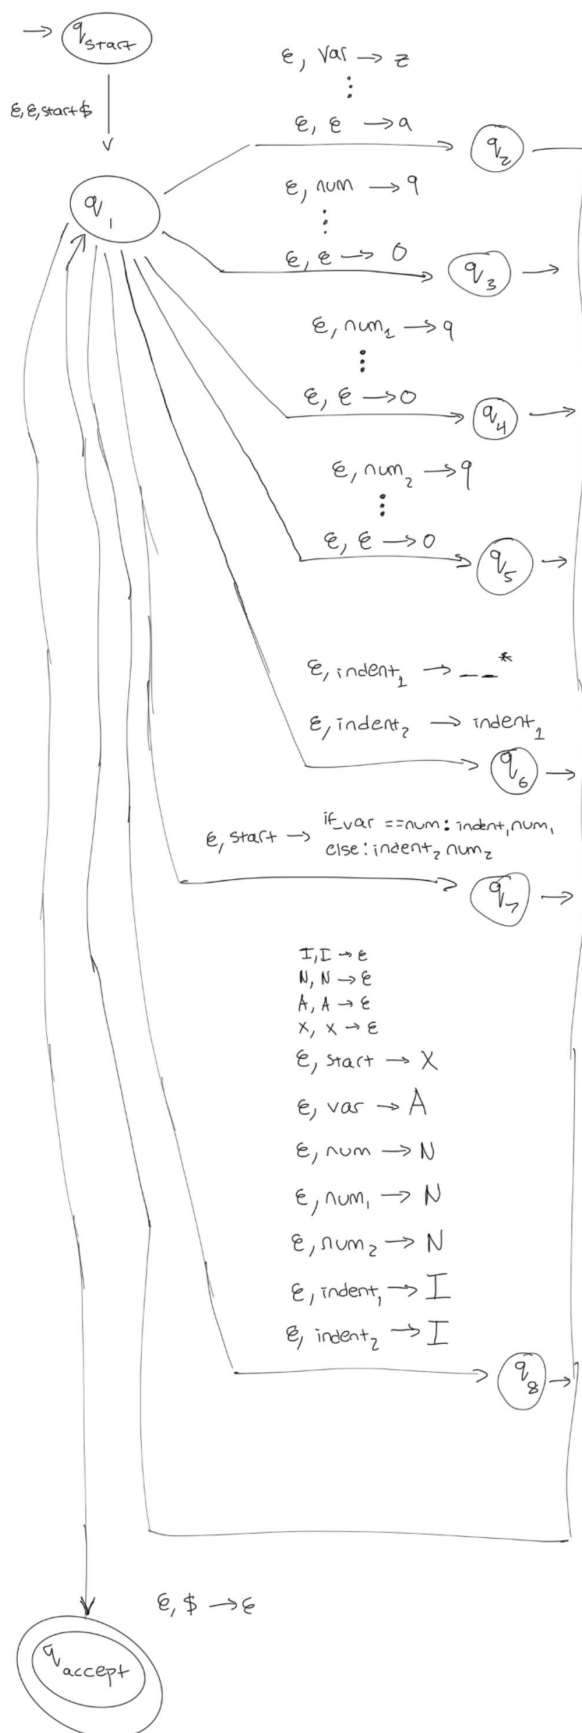 → q start
ε, ε, start $
q 1
ε, var → z
⋮
ε, ε → a
q 2
ε, num → 9
⋮
ε, ε → 0
q 3
ε, num₁ → 9
⋮
ε, ε → 0
q 4
ε, num₂ → 9
⋮
ε, ε → 0
q 5
ε, indent₁ → _ _*
ε, indent₂ → indent₁
q 6
ε, start → if_var ==num: indent, num,
else: indent₂ num₂
q 7
I, I → ε
N, N → ε
A, A → ε
X, X → ε
ε, start → X
ε, var → A
ε, num → N
ε, num₁ → N
ε, num₂ → N
ε, indent₁ → I
ε, indent₂ → I
q 8
ε, $ → ε
q accept